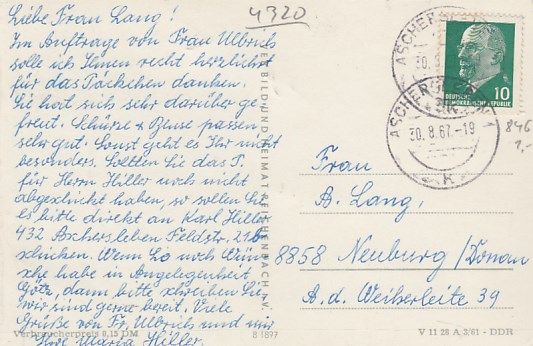 4320
Liebe Frau Lang!
Im Auftrage von Frau Ulbrich
soll ich Ihnen recht herzlichst
für das Päckchen danken.
Sie hat sich sehr darüber ge-
freut. Schürze & Bluse passen
sehr gut. Sonst geht es Ihr nicht
besonders. Sollten Sie das P.
für Herrn Hiller noch nicht
abgeschickt haben, so sollen Sie
es bitte direkt an Karl Hiller
432 Aschersleben Feldstr. 21b
schicken. Wenn Sie noch Wün-
sche habe in Angelegenheit
Götz, dann bitte schreiben Sie
wir sind gerne bereit. Viele
Grüße von Fr. Ulbrich und mir
Ihre Maria Hiller.
Verbraucherpreis 0,15 DM
BILD UND HEIMAT REICHENBACH I. V.
B 1897
ASCHERSLEBEN
30.8.67.-19
K
10
DEUTSCHE
DEMOKRATISCHE REPUBLIK
846
1,-
Frau
A. Lang,
8858 Neuburg/Donau
A. d. Weiherleite 39
V 11 28 A 2/61 - DDR